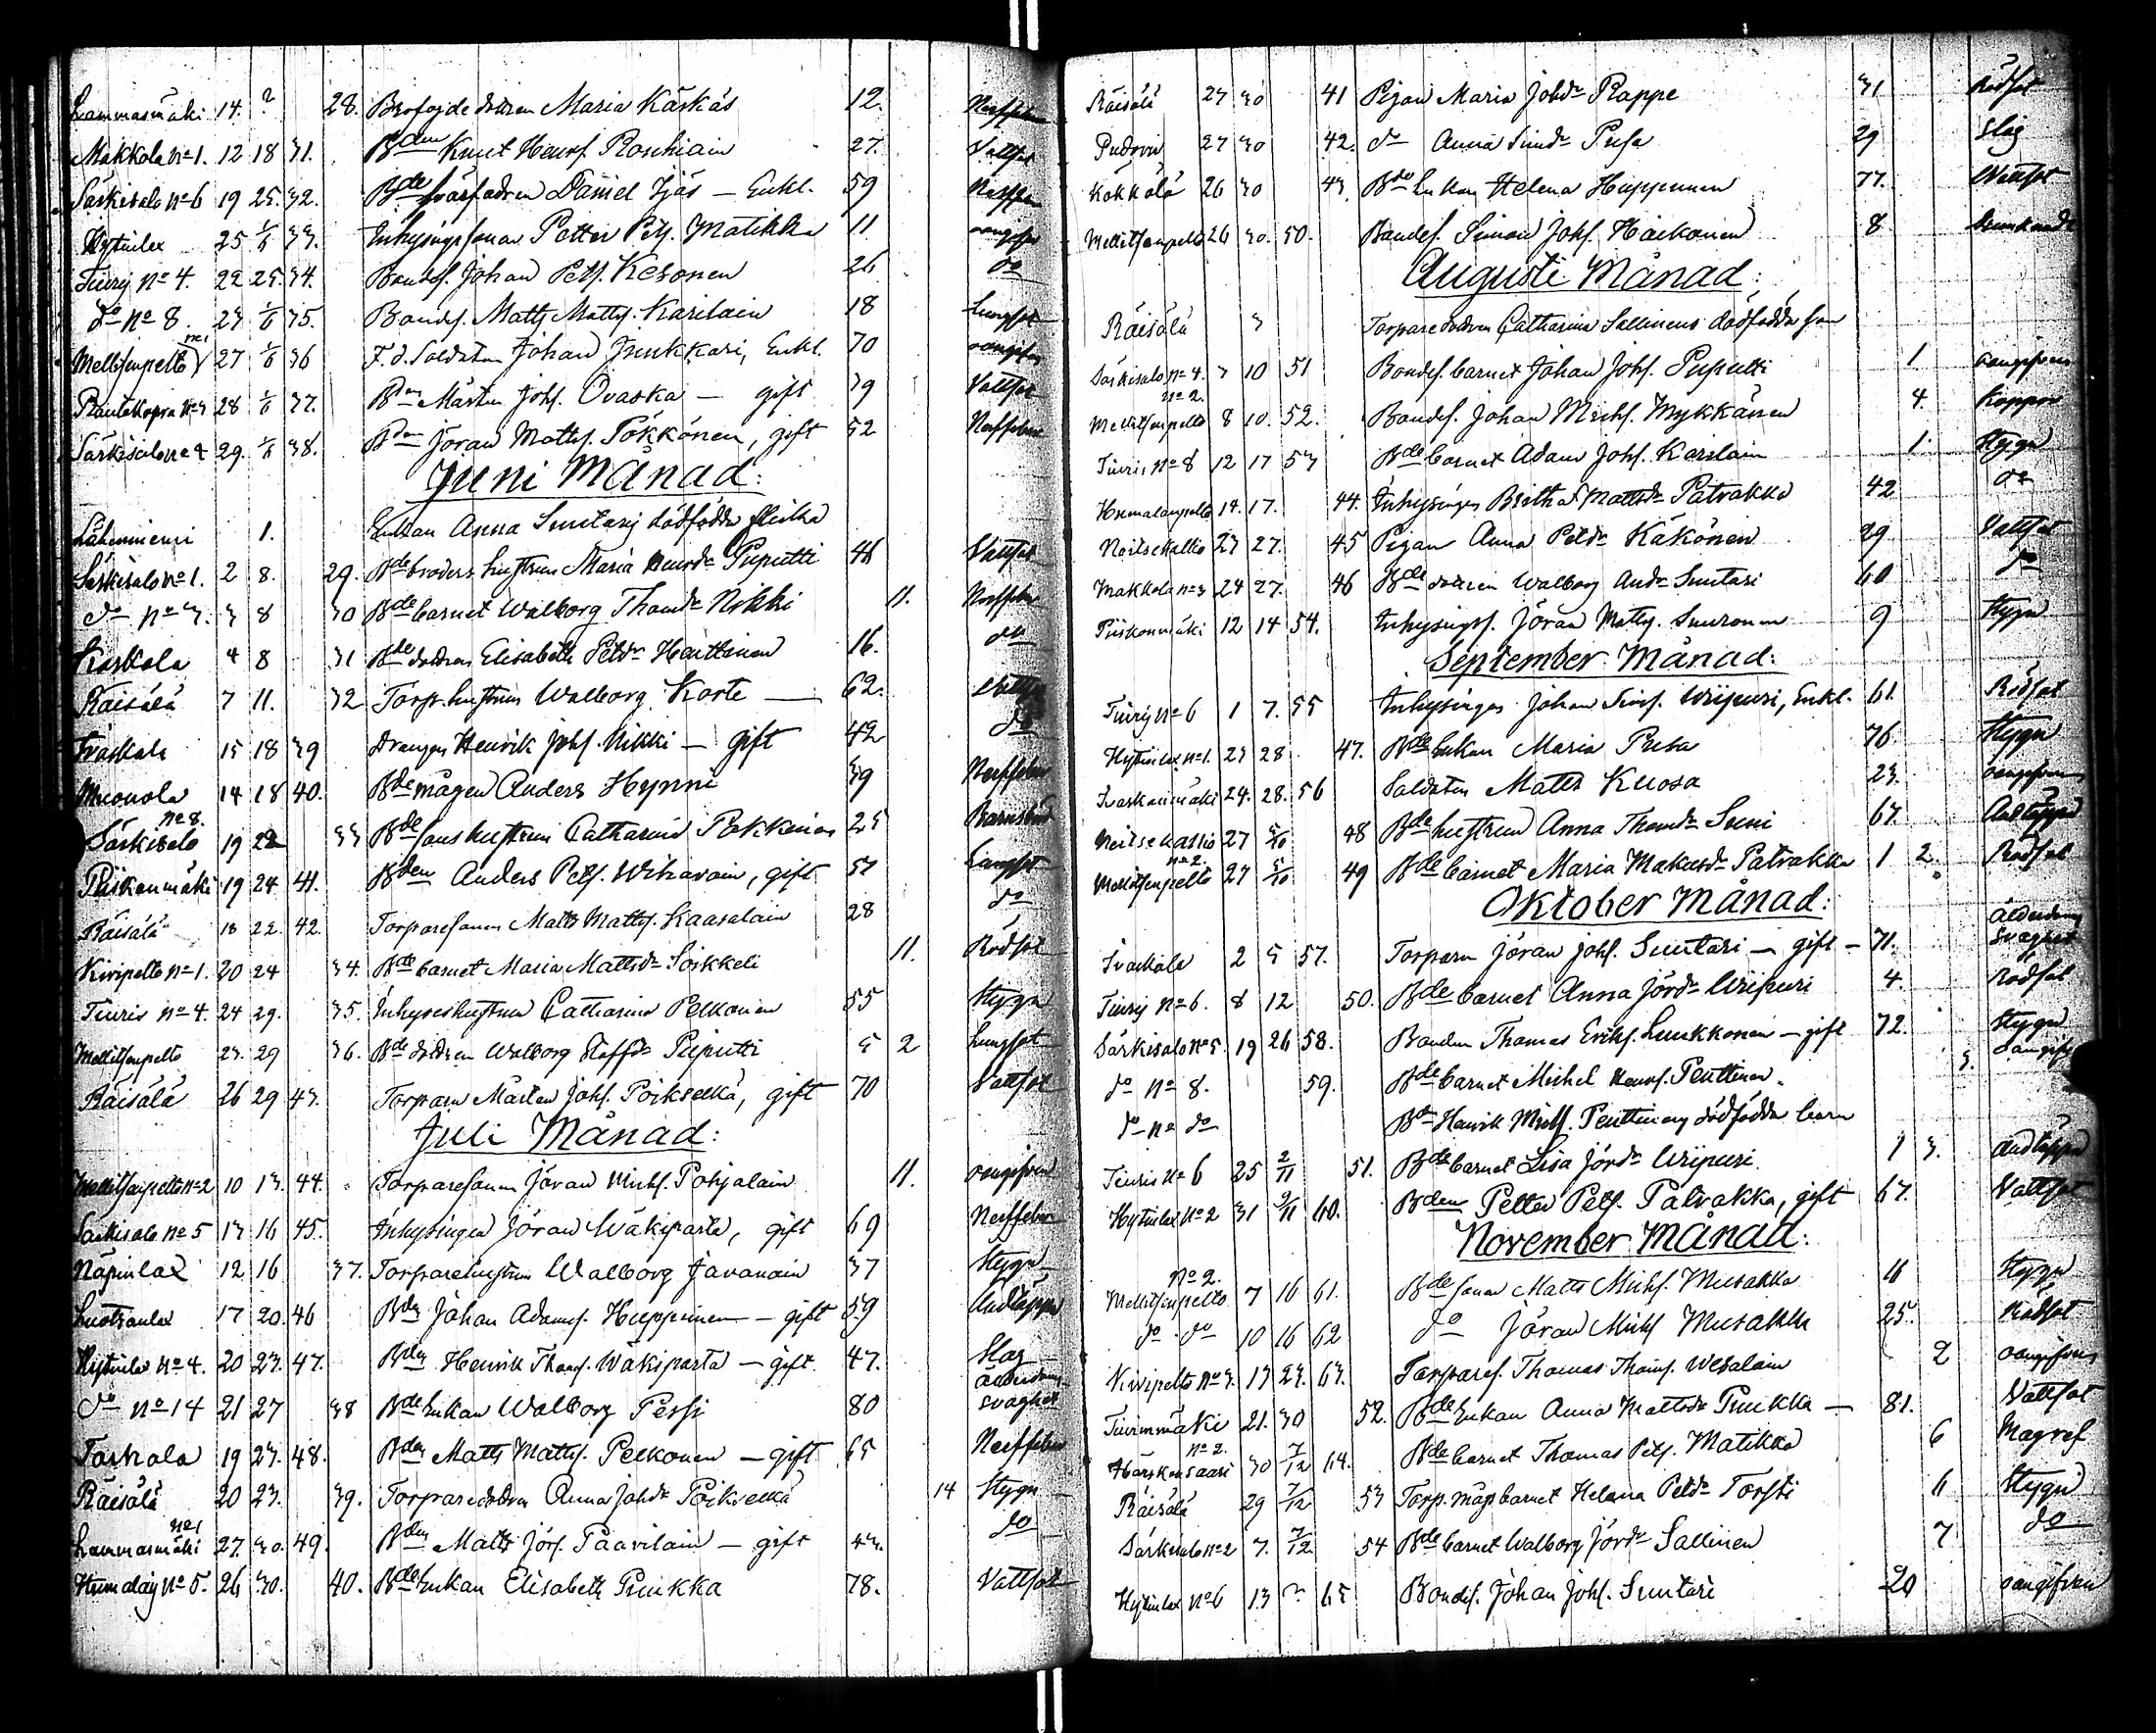 Lammasmäki 14. ? 28. dottren Maria Käskäs 12. Nerffeber
Makkola No 1. 12 18 31. Bden Knut Henrs. Roschiain 27. Vattsot
Särkisalo No 6 19 25. 32. Bde svärfadren Daniel Ijäs — Enkl. 59 Nerffeber
Hytinlax 25 1/6 33. Inhysingssonen Petter Pets. Matikka 11 oangifven
Tiurij No 4. 22 25. 34. Bondes. Johan Pets. Kesonen 26 do
do No 8. 23 1/6 35. Bondes. Matts Matts. Karilain 18 Lungsot
Mellitsenpelto No 1 27 1/6 36 F. d. Soldaten Johan Junkkari, Enkl. 70 oangifven
Rautakopra No 3 28 1/6 37. Bden Mårten Johs. Ovaska — gift 39 Vattsot
Särkisalo No 4 29. 1/6 38. Bden Jöran Matts. Pökkönen, gift 52 Nerffeber
Juni Månad:
Lähenniemi 1. Enkan Anna Suutarij dödfödda flicka
Särkisalo No 1. 2 8. 29. Bde broders hustrun Maria Henrdr Puputti 46 Vattsot
do No 3. 3 8 30 Bde barnet Walborg Thomdr Nikki 11. Nerffeber
Kaskala 4 8 31 Bde dottren Elisabeth Petdr Henttinen 16. do
Räisälä 7 11. 32 Torp. hustrun Walborg Korte — 62. Vattsot
Ivaskala 15 18 39 Drängen Henrik Johs. Nikki — gift 42 do
Muonola 14 18 40. Bde mågen Anders Hynni 39 Nerffeber
Särkisalo No 8. 19 22 33 Bde sons hustrun Catharina Pokkinen 25 Barnsbörd
Piiskonmäki 19 24 41. Bden Anders Pets. Wihavain, gift 57 Lungsot
Räisälä 18 22. 42. Torparesonen Matts Matts. Kaasalain 28 do
Kivipelto No 1. 20 24 34. Bde barnet Maria Mattsdr Soikkeli 11. Rödsot
Tiuris No 4. 24 29. 35. Inhyseshustrun Catharina Pelkonen 55 Stygn
Mellitsenpelto 23. 29 36. Bde dottren Walborg Staffdr Puputti 5 2 Lungsot
Räisälä 26 29 43. Torparn Mårten Johs. Poikselkä, gift 70 Vattsot
Juli Månad:
Mellitsenpelto No 2 10 13. 44. Torparesonen Jöran Michs. Pohjalain 11. oangifven
Särkisalo No 5 13 16 45. Inhysingen Jöran Wäkiparta, gift 69 Nerffeber
Näpinlax 12 16 37. Torparehustrun Walborg Javanain 37 Stygn
Luotsanlax 17 20. 46 Bden Johan Adams. Huppoinen — gift 59 Andtäppa
Hytinlax No 4. 20 23. 47. Bden Henrik Thoms. Wäkiparta — gift 47. Slag
do No 14 21 27 38 Bde Enkan Walborg Pessi 80 ålderdoms svaghet
Taskala 19 23. 48. Bden Matts Matts. Pelkonen — gift 65 Nerffeber
Räisälä 20 23. 39. Torparedottren Anna Johdr Poikselkä 14 Stygn
Lammasmäki No 1 27. 30. 49. Bden Matts Jörs. Paavilain — gift 43. do
Humalaij No 5. 26 30. 40. Bde Enkan Elisabeth Puukka 78. Vattsot
Räisälä 27 30 41 Pigan Maria Johdr Rappe 31 Rödsot
Pudovin 27 30 42. do Anna Simdr Pusa 29 Slag
Kökkölä 26 30 43. Bde Enkan Helena Huppoinen 77. Vattsot
Mellitsenpelto 26 30. 50. Bondes. Simon Johs. Haikonen 8.
Augusti Månad:
Räisälä 3 Torparedottren Catharina Sallinens dödfödda son
Särkisalo No 4. 3 10 51 Bondes. barnet Johan Johs. Puputti 1. oangifven
Mellitsenpelto No 2. 8 10. 52. Bondes. Johan Michs. Mykkänen 4. Koppor
Tiuris No 8 12 17 53 Bde barnet Adam Johs. Karilain 1. Stygn
Humalanpelto 14. 17. 44. Inhysinges Britha Mattsdr Patrakka 42 do
Noitsekallio 23 27. 45 Pigan Anna Petdr Käkönen 29 Vattsot
Makkola No 3 24 27. 46 Bde dottren Walborg Anddr Suutari 60 do
Piiskonmäki 12 14 54. Inhysingss. Jöran Matts. Suuronen 9 Stygn
September Månad:
Tiurij No 6 1 7. 55 Inhysinges Johan Sims. Wiipuri, Enkl. 61. Rödsot
Hytinlax No 1. 23 28 47. Bde Enkan Maria Pusa 76. Stygn
Ivaskanmäki 24. 28. 56 Soldaten Matts Kuosa 23. oangifven
Noitsekallio 27 5/10 48 Bde hustrun Anna Thomdr Suni 67. Andtäppa
Mellitsenpelto No 2. 27 5/10 49 Bde barnet Maria Makusdr Patrakka 1 2. Rödsot
Oktober Månad:
Ivaskala 2 5 57. Torparn Jöran Johs. Suutari — gift — 71. ålderdoms svaghet
Tiurij No 6. 8 12 50. Bde barnet Anna Jördr Wiipuri 4. Rödsot
Särkisalo No 5. 19 26 58. Bonden Thomas Eriks. Luukkonen — gift 72. Stygn
do No 8. 59. Bde barnet Michel Henrs. Penttinen. 3. oangifv
do No do Bden Henrik Michs. Penttinens dödfödda barn
Tiuris No 6 25 2/11 51. Bde barnet Lisa Jördr Wiipuri 1 3. andtäppa
Hytinlax No 2 31 9/11 60. Bden Petter Pets. Patrakka, gift 67. Vattsot
November Månad:
Mellitsenpelto No 2. 7 16 61. Bde sonen Matts Michs. Musakka 11 Stygn
do do 10 16 62 do Jöran Michs Musakka 25. Rödsot
Kivipelto No 3. 13 23. 63. Torpares. Thomas Thoms. Wesalain 2 oangifven
Tiurinmäki 21. 30 52. Bde Enkan Anna Mattsdr Puukka — 81. Vattsot
Härskönsaari No 2. 30 7/12 64. Bde barnet Thomas Pets. Matikka 6 Magref
Räisälä 29 7/12 53 Torp. mågs barnet Helena Petdr Torsti 11 Stygn
Särkisalo No 2 7. 7/12 54 Bde barnet Walborg Jördr Sallinen 7 do
Hytinlax No 6 13 ? 65 Bondes. Johan Johs. Suutari 20 oangifven